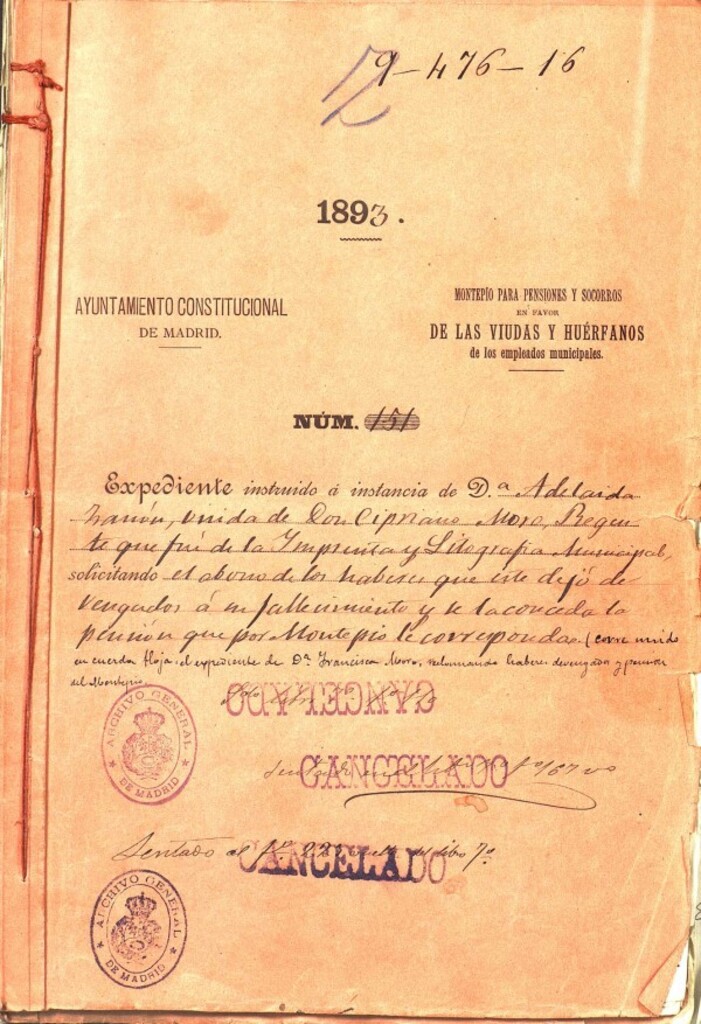 9-476-16
1893.
AYUNTAMIENTO CONSTITUCIONAL
DE MADRID.
MONTEPÍO PARA PENSIONES Y SOCORROS
EN FAVOR
DE LAS VIUDAS Y HUÉRFANOS
de los empleados municipales.
NÚM. 151
Expediente instruido á instancia de D.ª Adelaida
viuda de Don Cipriano Moro, Regen
te que fué de la Imprenta y Litografia Municipal,
solicitando el abono de los haberes que este dejó de
vengados á su fallecimiento y se la conceda la
pensión que por Montepio le corresponda. (corre unido
en cuerda floja el expediente de D.ª Francisca Moro, reclamando haberes devengados y pension
del Montepio.
CANCELADO
ARCHIVO GENERAL
DE MADRID
CANCELADO
Sentado al fº 223 vuelto del libro 7º
CANCELADO
ARCHIVO GENERAL
DE MADRID